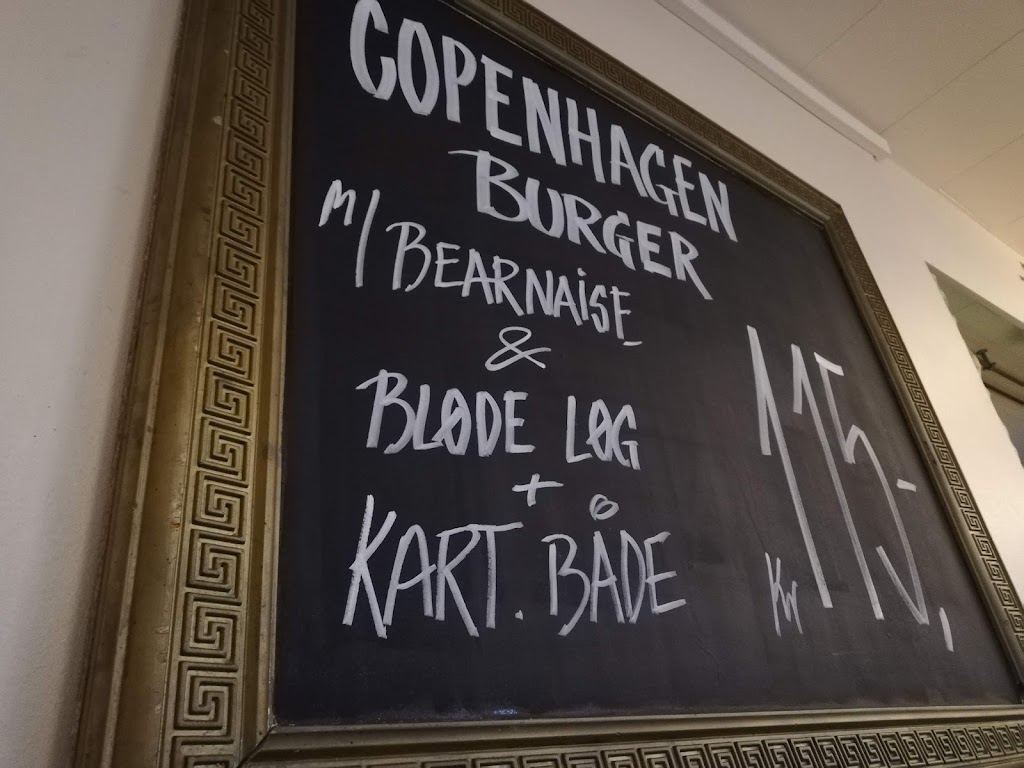 COPENHAGEN
BURGER
M/ BEARNAISE
&
BLØDE LØG
+
KART. BÅDE
Kr 115,-